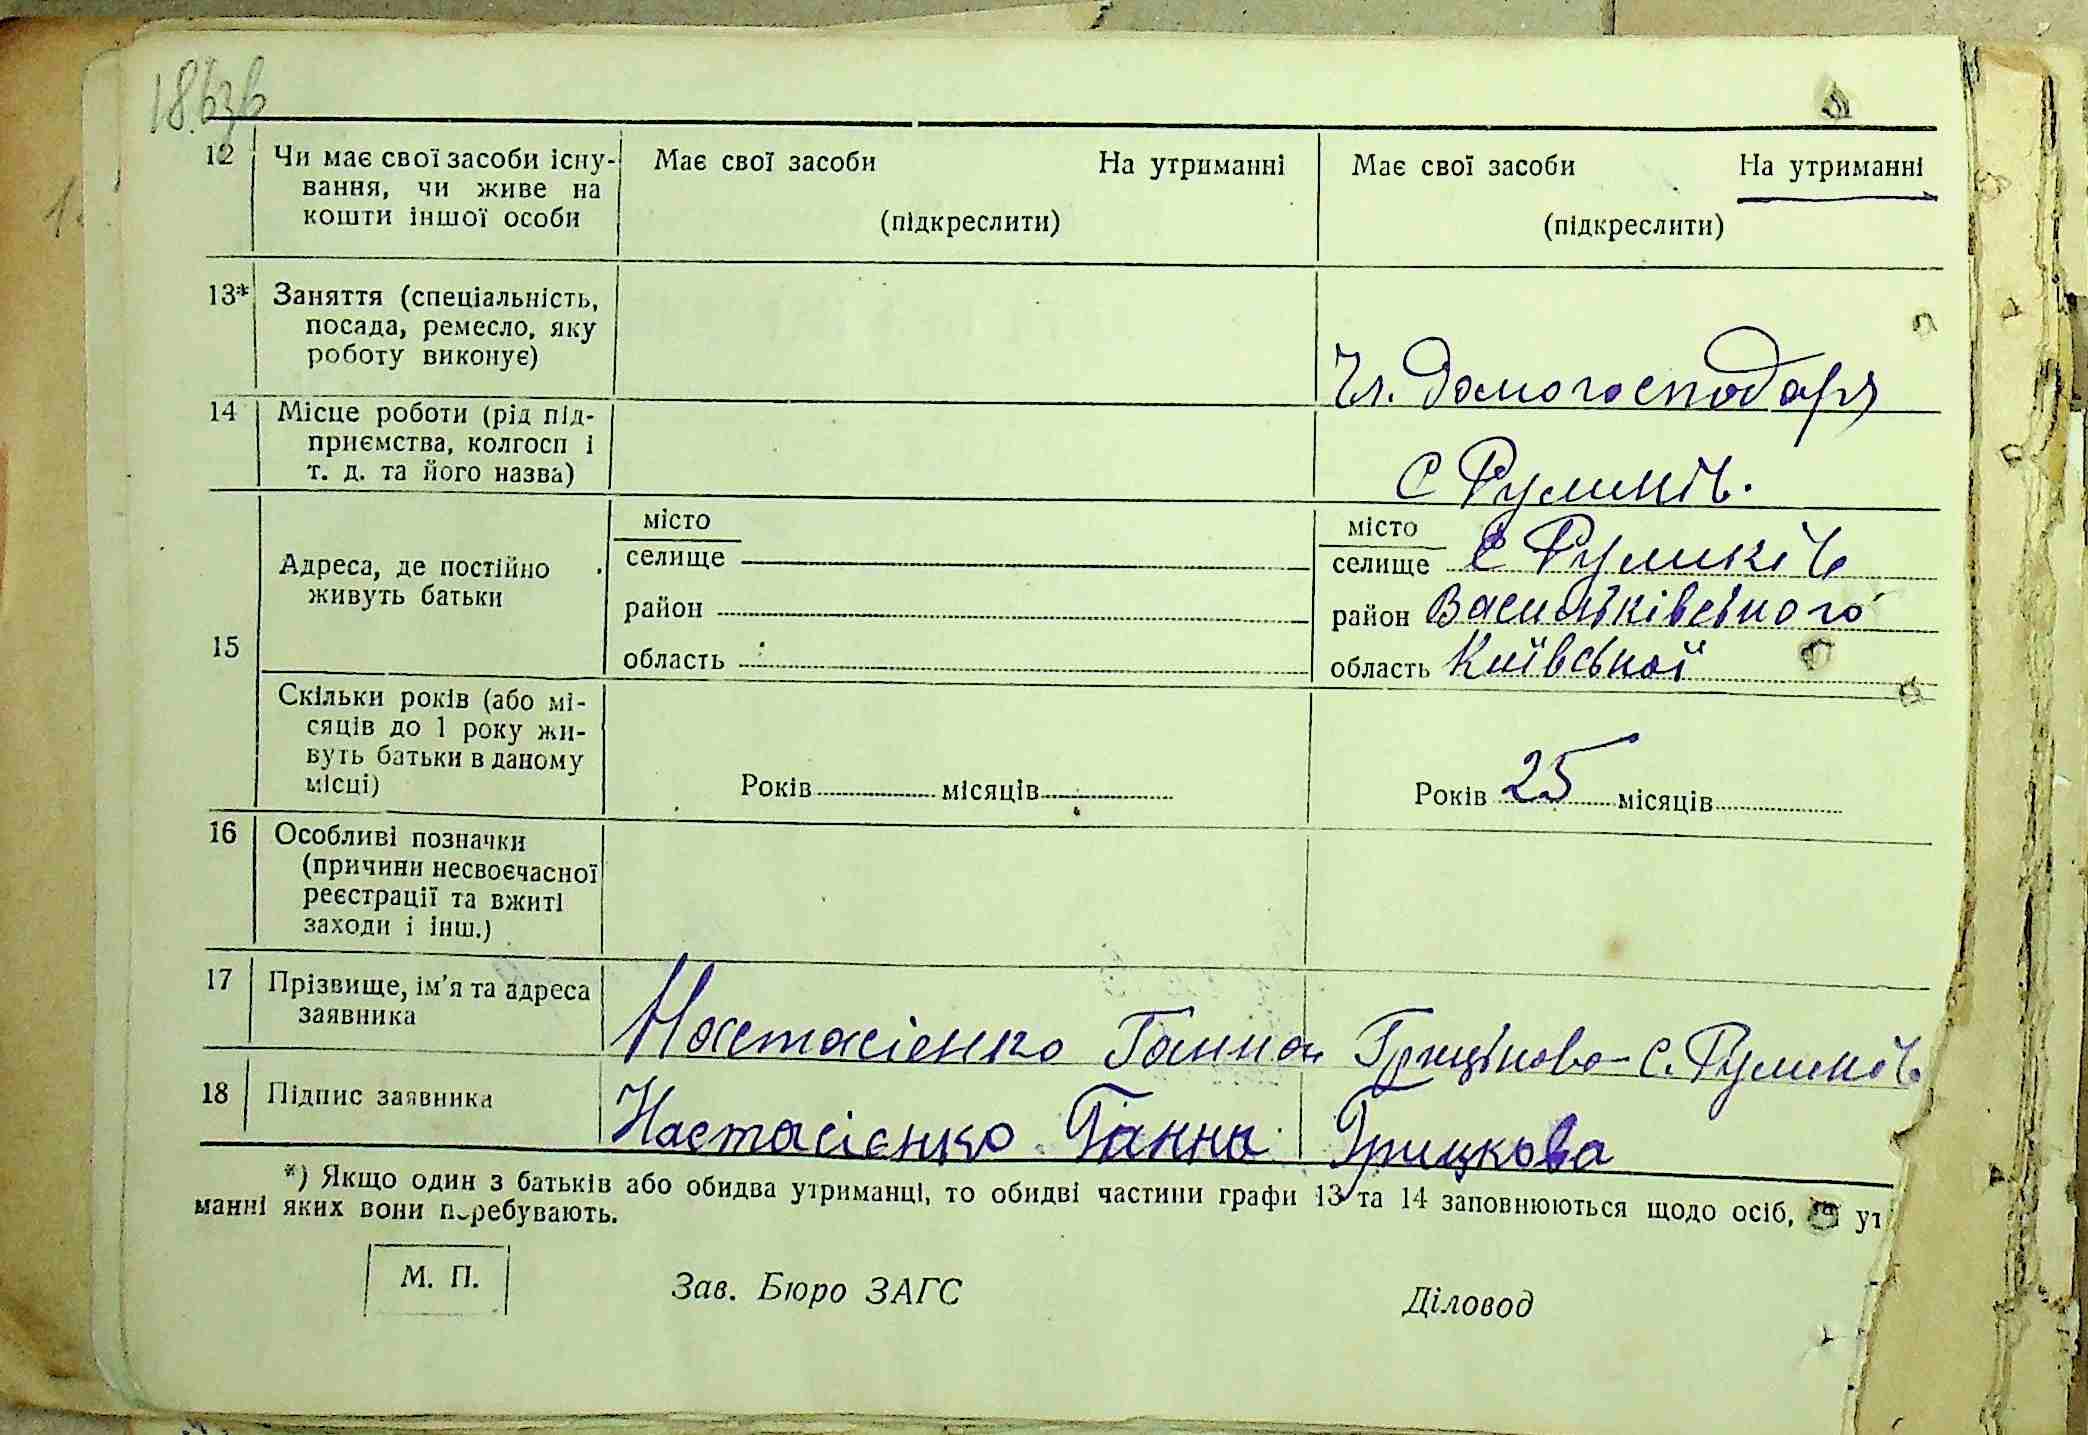 18 зв
12 Чи має свої засоби існу-
вання, чи живе на
кошти іншої особи
Має свої засоби На утриманні
(підкреслити)
Має свої засоби На утриманні
(підкреслити)
13* Заняття (спеціальність,
посада, ремесло, яку
роботу виконує)
Чл. Домогосподаря
14 Місце роботи (рід під-
приємства, колгосп і
т. д. та його назва)
С Руликів.
15
Адреса, де постійно
живуть батьки
місто
селище
район
область
місто
селище С Руликів
район Васильківського
область Київської
Скільки років (або мі-
сяців до 1 року жи-
вуть батьки в даному
місці)
Років місяців
Років 25 місяців
16 Особливі позначки
(причини несвоєчасної
реєстрації та вжиті
заходи і інш.)
17 Прізвище, ім'я та адреса
заявника
Настасієнко Ганна Грицькова с. Руликів
18 Підпис заявника
Настасієнко Ганна Грицкова
*) Якщо один з батьків або обидва утриманці, то обидві частини графи 13 та 14 заповнюються щодо осіб, ут
манні яких вони перебувають.
М. П.
Зав. Бюро ЗАГС
Діловод